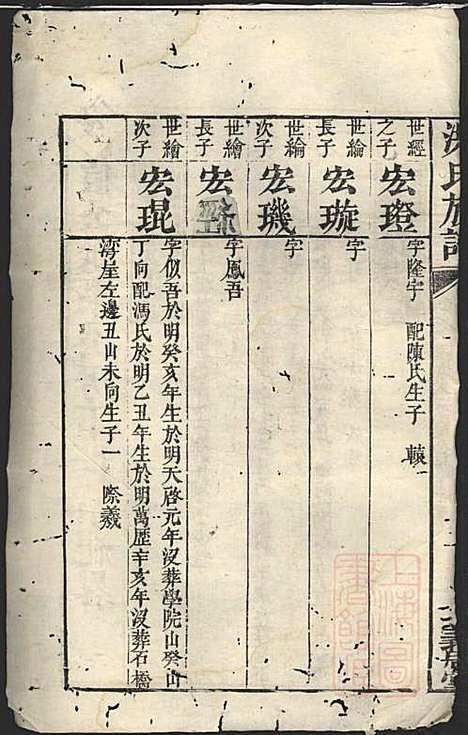 氏族譜
世經
之子
宏璒
字隆宇 配陳氏生子 轅
世綸
長子
宏璇
字
世綸
次子
宏璣
字
世繪
長子
宏
字鳳吾
世繪
次子
宏琨
字似吾於明癸亥年生於明天啓元年沒葬學院山癸山
丁向配馮氏於明乙丑年生於明萬歷辛亥年沒葬石橋
湾崖左邊丑山未向生子一 際羲
上海圖書館藏